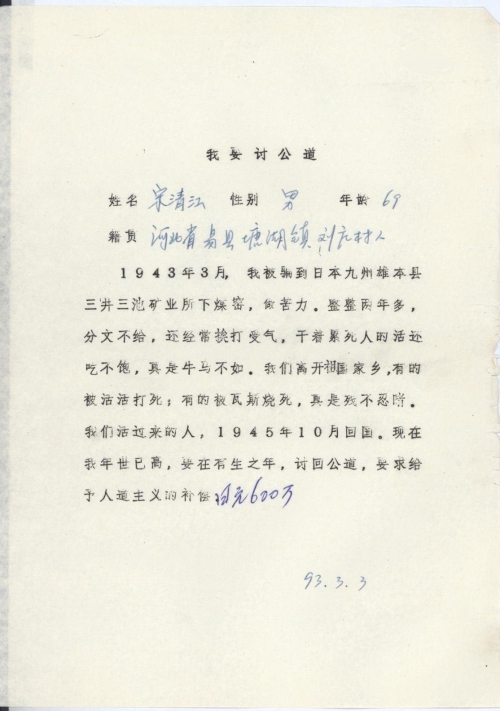 我要讨公道
姓名 宋清江 性别 男 年龄 69
籍贯 河北省易县塘湖镇刘庄村人
1943年3月，我被骗到日本九州雄本县
三井三池矿业所下煤窑，做苦力。整整两年多，
分文不给，还经常挨打受气，干着累死人的活还
吃不饱，真是牛马不如。我们离开祖国家乡，有的
被活活打死；有的被瓦斯烧死，真是残不忍睹。
我们活过来的人，1945年10月回国。现在
我年世已高，要在有生之年，讨回公道，要求给
予人道主义的补偿日元600万
93.3.3